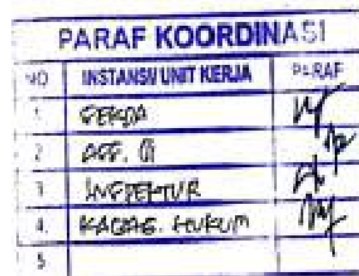 PARAF KOORDINASI
NO INSTANSI/UNIT KERJA PARAF
1. SEKDA
2 ASS. II
3 INSPEKTUR
4. KABAG. HUKUM
5